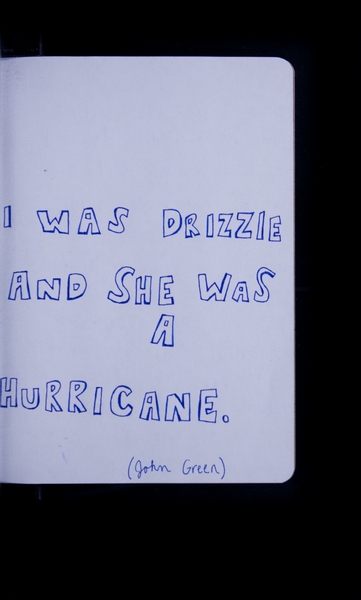 I WAS DRIZZLE
AND SHE WAS
A
HURRICANE.
(John Green)